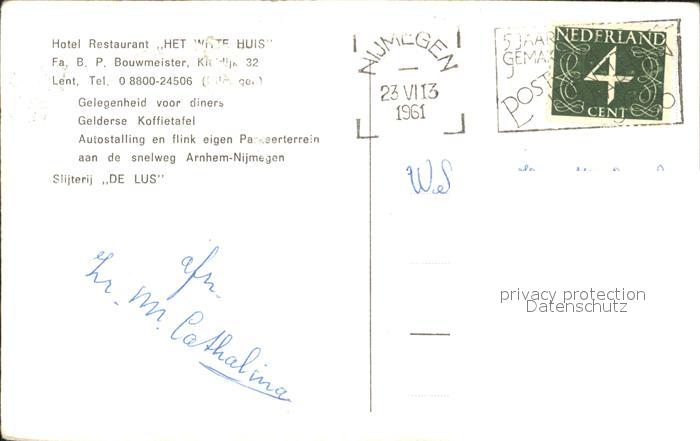 Hotel Restaurant „HET WITTE HUIS"
Fa. B. P. Bouwmeister, 32
Lent, Tel. 0 8800-24506
Gelegenheid voor diners
Gelderse Koffietafel
Autostalling en flink eigen Parkeerterrein
aan de snelweg Arnhem-Nijmegen
Slijterij „DE LUS"
NIJMEGEN
23 VI 13
1961
5 JAAR
GEMA
POST
NEDERLAND
4
CENT
afz.
Zr. M. Cathalina
privacy protection
Datenschutz